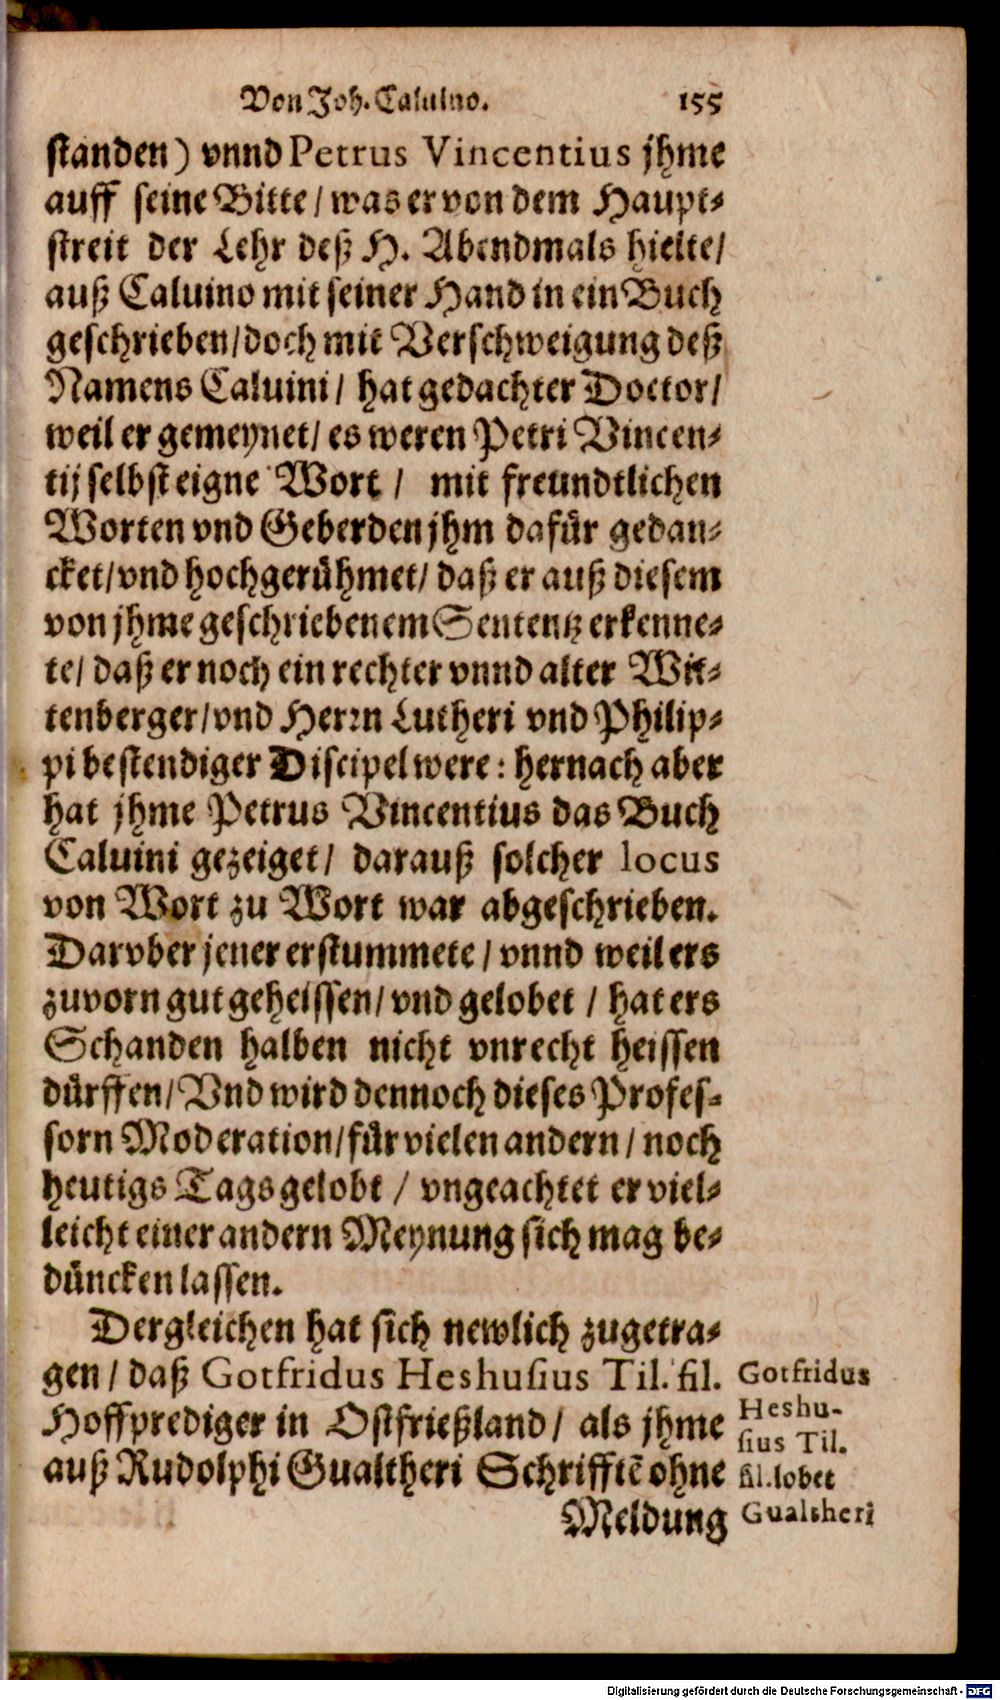 Von Joh. Caluino. 155
standen) vnnd Petrus Vincentius jhme
auff seine Bitte / was er von dem Haupt-
streit der Lehr deß H. Abendmals hielte /
auß Caluino mit seiner Hand in ein Buch
geschrieben / doch mit Verschweigung deß
Namens Caluini / hat gedachter Doctor /
weil er gemeynet / es weren Petri Vincen-
tij selbst eigne Wort / mit freundtlichen
Worten vnd Geberden jhm dafür gedan-
cket / vnd hochgerühmet / daß er auß diesem
von jhme geschriebenem Sententz erkenne-
te / daß er noch ein rechter vnnd alter Wit-
tenberger / vnd Herrn Lutheri vnd Philip-
pi bestendiger Discipel were : hernach aber
hat jhme Petrus Vincentius das Buch
Caluini gezeiget / darauß solcher locus
von Wort zu Wort war abgeschrieben.
Darvber jener erstummete / vnnd weil ers
zuvorn gut geheissen / vnd gelobet / hat ers
Schanden halben nicht vnrecht heissen
dürffen / Vnd wird dennoch dieses Profes-
sorn Moderation / für vielen andern / noch
heutigs Tags gelobt / vngeachtet er viel-
leicht einer andern Meynung sich mag be-
düncken lassen.
Dergleichen hat sich newlich zugetra-
gen / daß Gotfridus Heshusius Til. fil.
Hoffprediger in Ostfrießland / als jhme
auß Rudolphi Gualtheri Schrifftē ohne
Meldung
Gotfridus
Heshu-
sius Til.
fil. lobet
Gualtheri
Digitalisierung gefördert durch die Deutsche Forschungsgemeinschaft - DFG